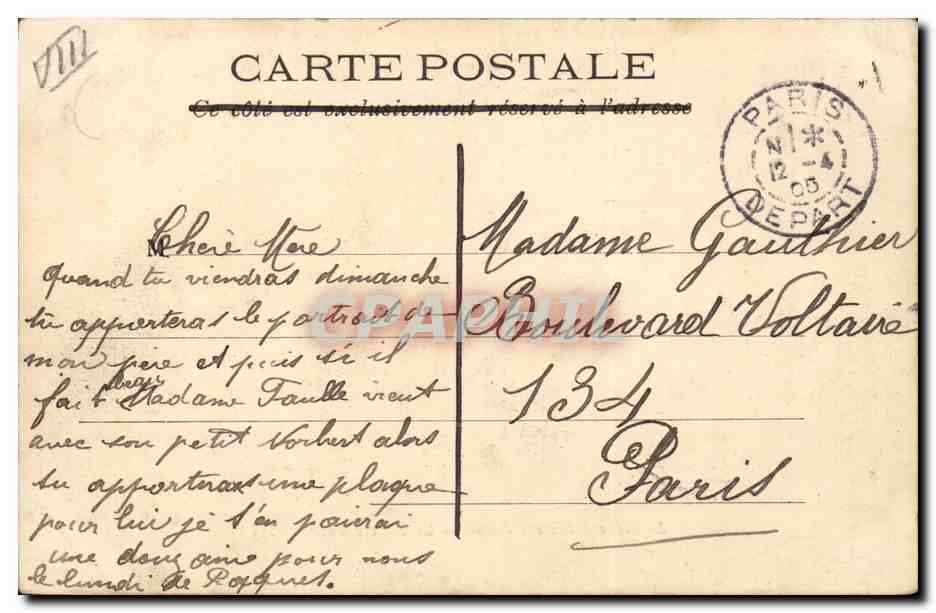 CARTE POSTALE
Ce côté est exclusivement réservé à l'adresse
PARIS
12 -4
05
DEPART
M
Cherè Mere
Quand tu viendras dimanche
tu apporteras le portrait de
mon père et puis si il
fait beau Madame Faulle vient
avec son petit Norbert alors
tu apporteras une plaque
pour lui je t'en paierai
une douzaine pour nous
le lundi de Paques.
Madame Gauthier
Boulevard Voltaire
134
Paris
CPAPHIL